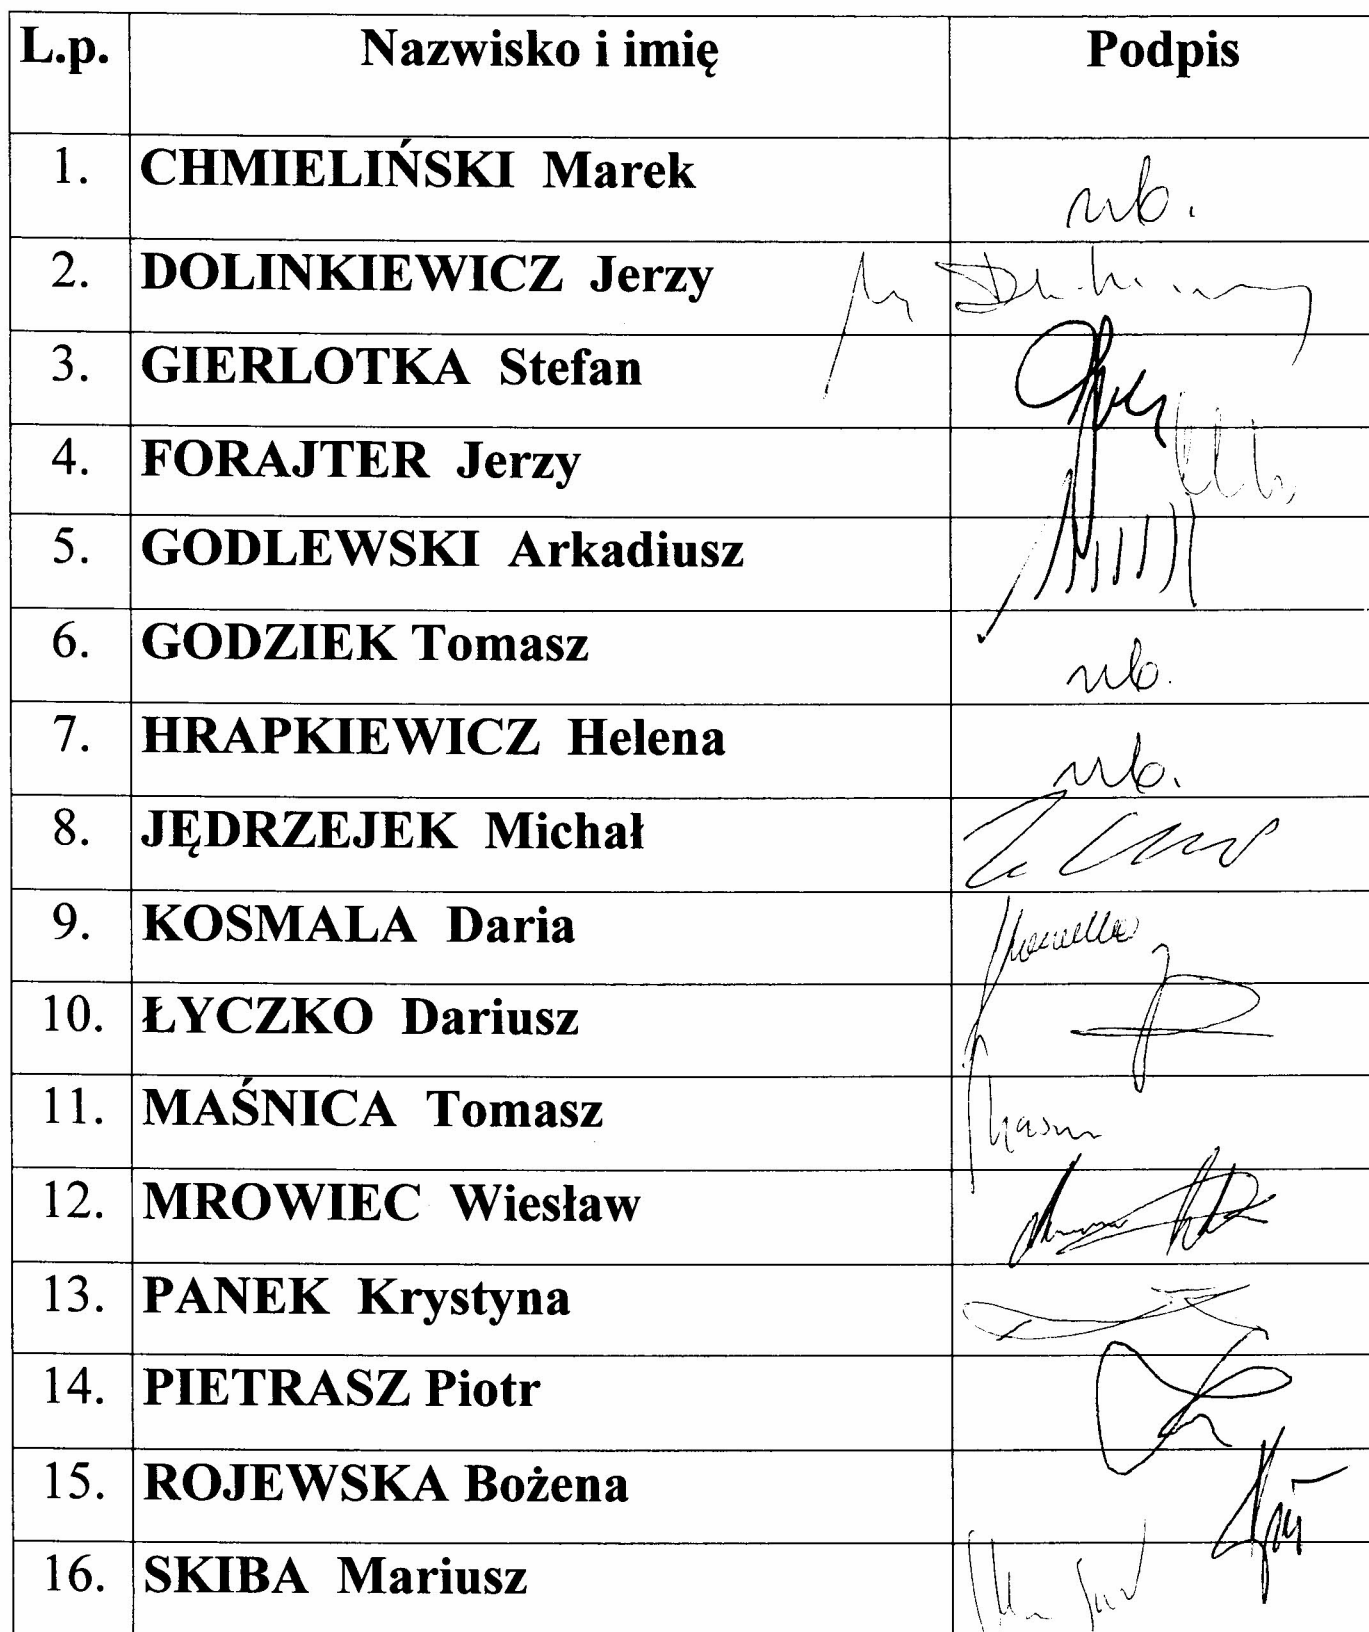 L.p. Nazwisko i imię Podpis
1. CHMIELIŃSKI Marek nb.
2. DOLINKIEWICZ Jerzy
3. GIERLOTKA Stefan
4. FORAJTER Jerzy
5. GODLEWSKI Arkadiusz
6. GODZIEK Tomasz nb.
7. HRAPKIEWICZ Helena nb.
8. JĘDRZEJEK Michał
9. KOSMALA Daria
10. ŁYCZKO Dariusz
11. MAŚNICA Tomasz
12. MROWIEC Wiesław
13. PANEK Krystyna
14. PIETRASZ Piotr
15. ROJEWSKA Bożena
16. SKIBA Mariusz